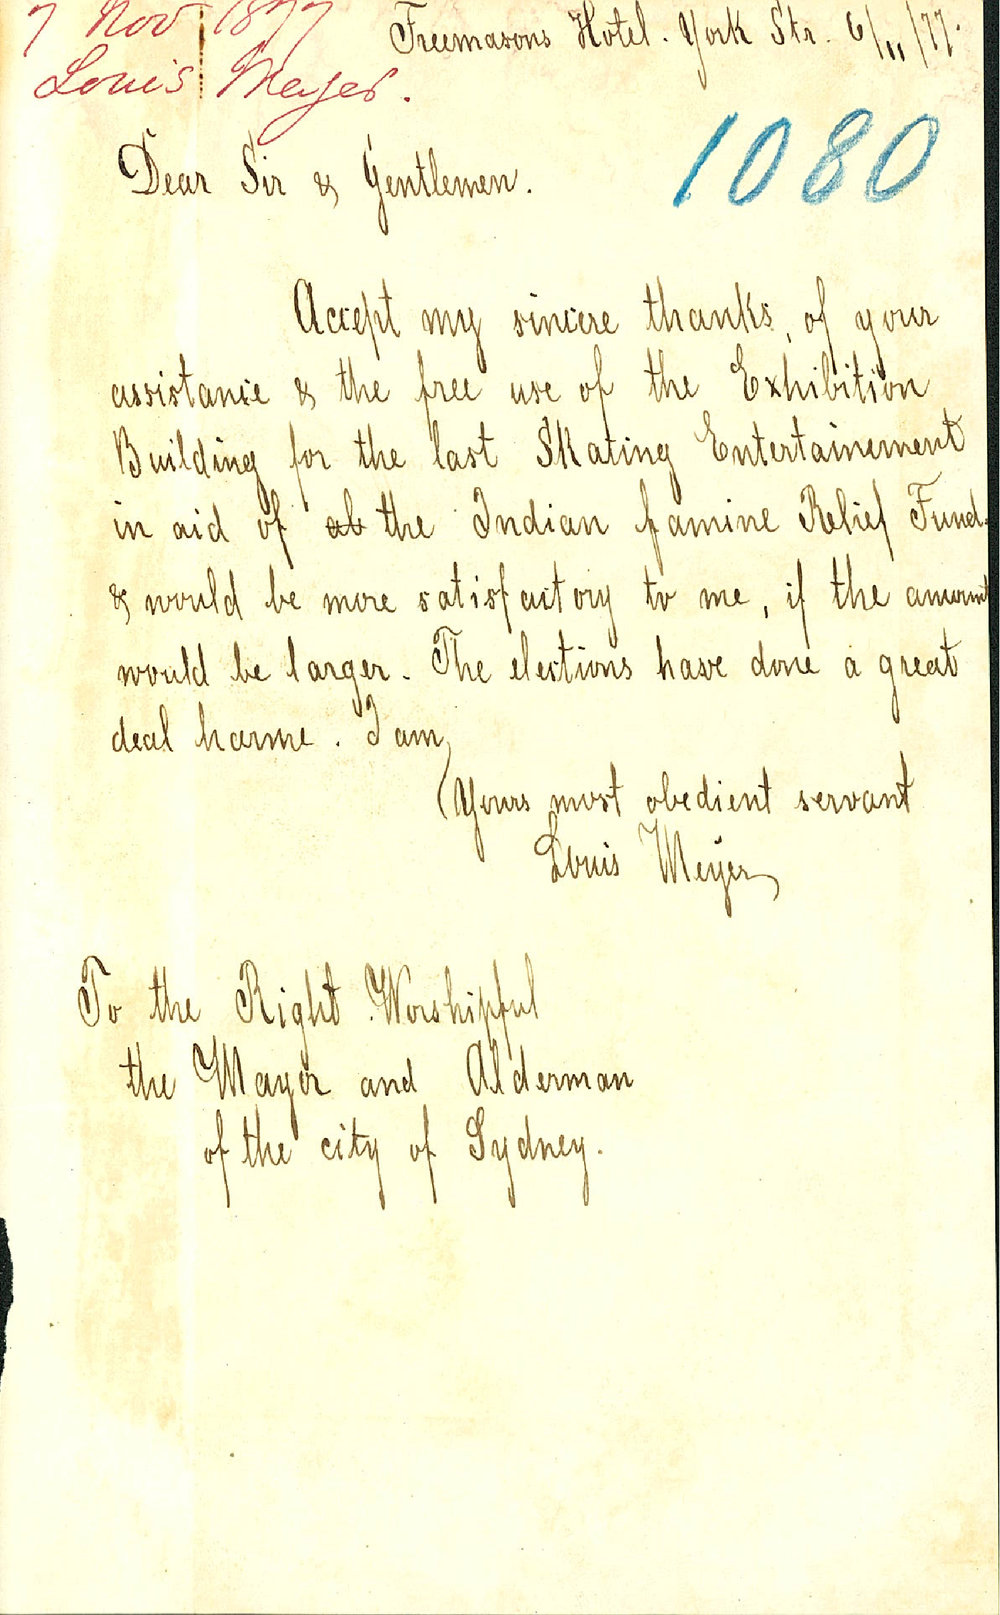 7 Nov 1877
Louis Meyer.
Freemasons Hotel. York Str. 6/11/77.
1080
Dear Sir & Gentlemen.
Accept my sincere thanks, of your
assistance & the free use of the Exhibition
Building for the last Skating Entertainement
in aid of ab the Indian famine Relief Fund.
& would be more satisfactory to me, if the amount
would be larger. The elections have done a great
deal harme. I am,
Yours most obedient servant
Louis Meyer
To the Right Worshipful
the Mayor and Alderman
of the city of Sydney.